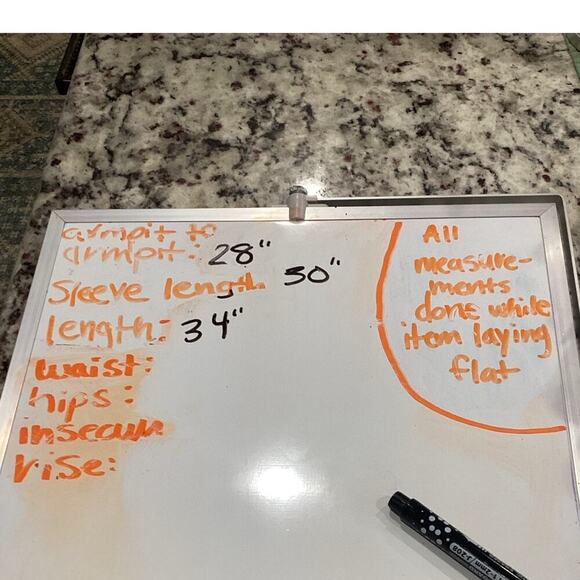 armpit to
armpit: 28"
Sleeve length 30"
length: 34"
waist:
hips:
insecum
rise:
All
measure-
ments
done while
item laying
flat